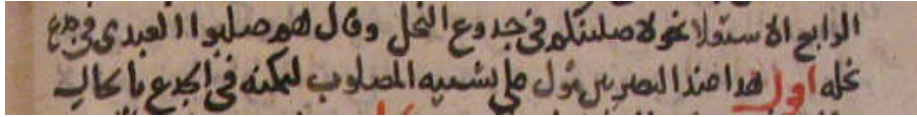 الرابع الاستعلا نحو لاصلبنكم في جدوع النخل وقال هم صلبوا العبدى في جدع
نخله اقول هدا عند البصريين مؤول على تشبيه المصلوب لتمكنه في الجدع بالحال